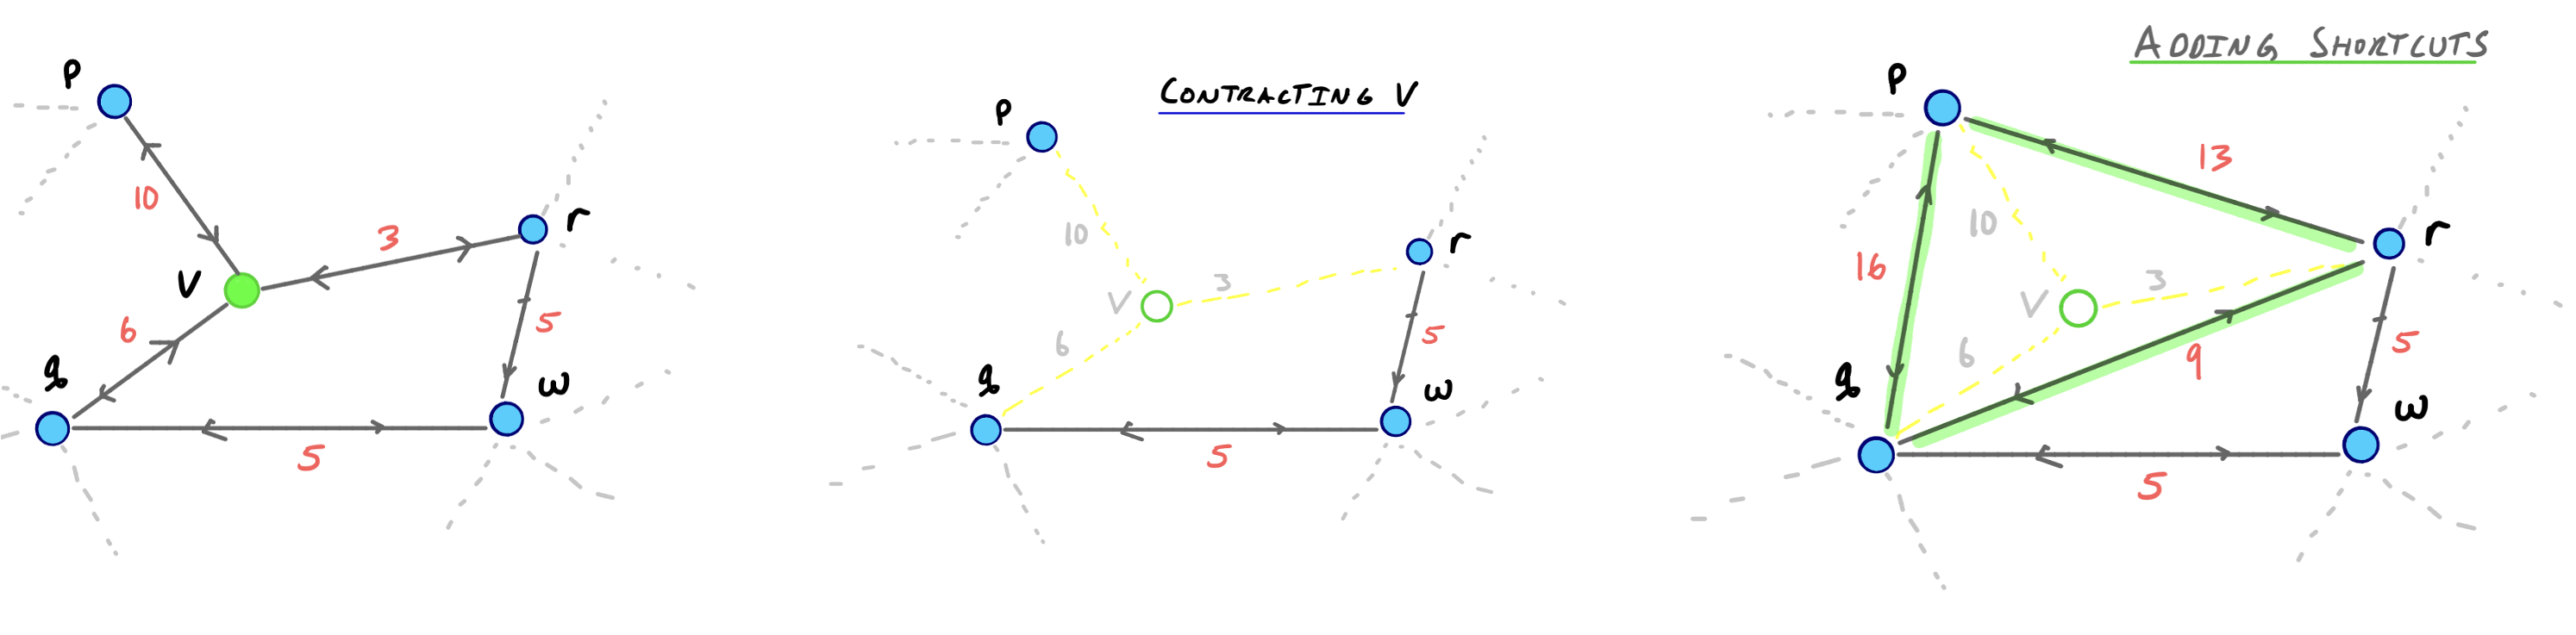 P
10
V
3
r
6
5
q
w
5
CONTRACTING V
P
10
V
3
r
6
5
q
w
5
ADDING SHORTCUTS
P
13
10
16
r
V
3
6
9
5
q
w
5